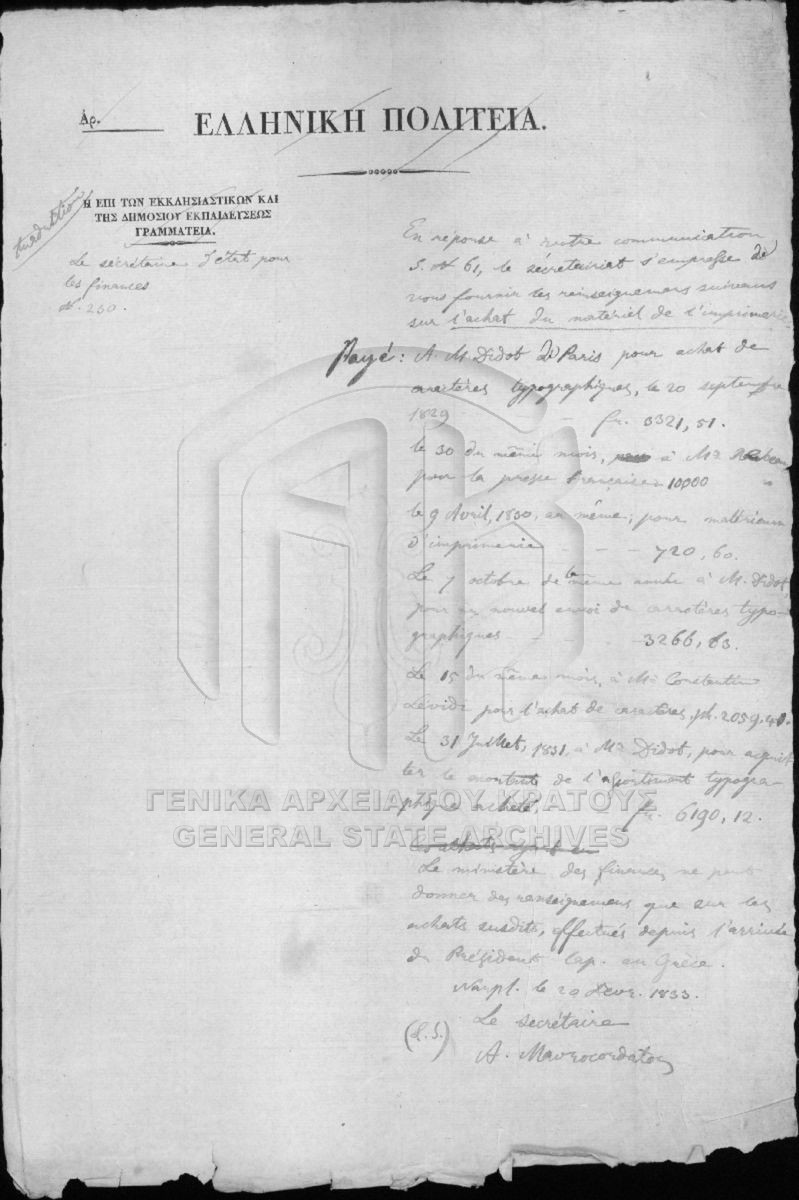 Ἀρ.
ΕΛΛΗΝΙΚΗ ΠΟΛΙΤΕΙΑ.
Η ΕΠΙ ΤΩΝ ΕΚΚΛΗΣΙΑΣΤΙΚΩΝ ΚΑΙ
ΤΗΣ ΔΗΜΟΣΙΟΥ ΕΚΠΑΙΔΕΥΣΕΩΣ
ΓΡΑΜΜΑΤΕΙΑ.
traduction
Le secrétaire d'état pour
les finances
№ 250.
En réponse à votre communication
S. № 61, le sécretariat s'empresse de
vous fournir les renseignemens suivans
sur l'achat du matériel de l'imprimerie
Payé: A M. Didot de Paris pour achat de
caractères typographiques, le 20 septembre
1829 - - fr. 3321, 51.
le 30 du même mois, à Mr
pour la presse française 10,000 "
le 9 Avril, 1830, au même, pour matériaux
d'imprimerie - - - 720, 60.
Le 7 octobre de la même année à M. Didot,
pour un nouvel envoi de caractères typo-
graphiques - - - 3266, 63.
Le 15 du même mois, à Mr Constantin
Levidi pour l'achat de caractères, ph. 2059.40.
Le 31 Juillet, 1831, à Mr Didot, pour acquit-
ter le montant de l'assortiment typogra-
phique acheté, fr. 6190, 12.
Le ministère des finances ne peut
donner des renseignemens que sur les
achats susdits, effectués depuis l'arrivée
du Président Cap. en Grèce.
Naupl. le 20 Fevr. 1833.
Le secrétaire
(L.S.)
A. Mavrocordatos
ΓΕΝΙΚΑ ΑΡΧΕΙΑ ΤΟΥ ΚΡΑΤΟΥΣ
GENERAL STATE ARCHIVES